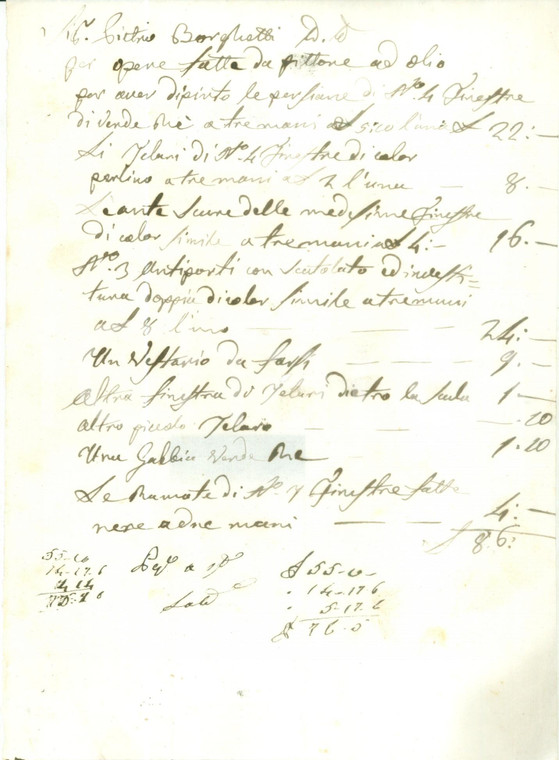 Sig. Pietro Borghetti D. D
per opere fatte da pittore ad olio
per aver dipinto le persiane di No. 4 Finestre
di verde Rè a tre mani a £ 5:10 l'uno £ 22:—
Li Telari di No. 4 Finestre di color
perlino a tre mani a £ 2 l'una — 8.—
Le ante scure delle medesime Finestre
di color simile a tre mani a £ 4:— 16.—
No. 3 Antiporti con scutolato ed investi=
tura doppia di color simile a tre mani
a £ 8 l'uno — — — 24:—
Un Vestario da farsi — — — 9.—
Altra finestra di Telari dietro la scala 1—
altro picolo Telaro — — — -.10
Una Gabbia Verde Rè 1.10
Le Ramate di No. 4 Finestre fatte
nere a due mani — — 4:—
£ 86:
55-10
14-17.6
£ 55-10-
. 14-176
. 5-17.6
£ 76-5